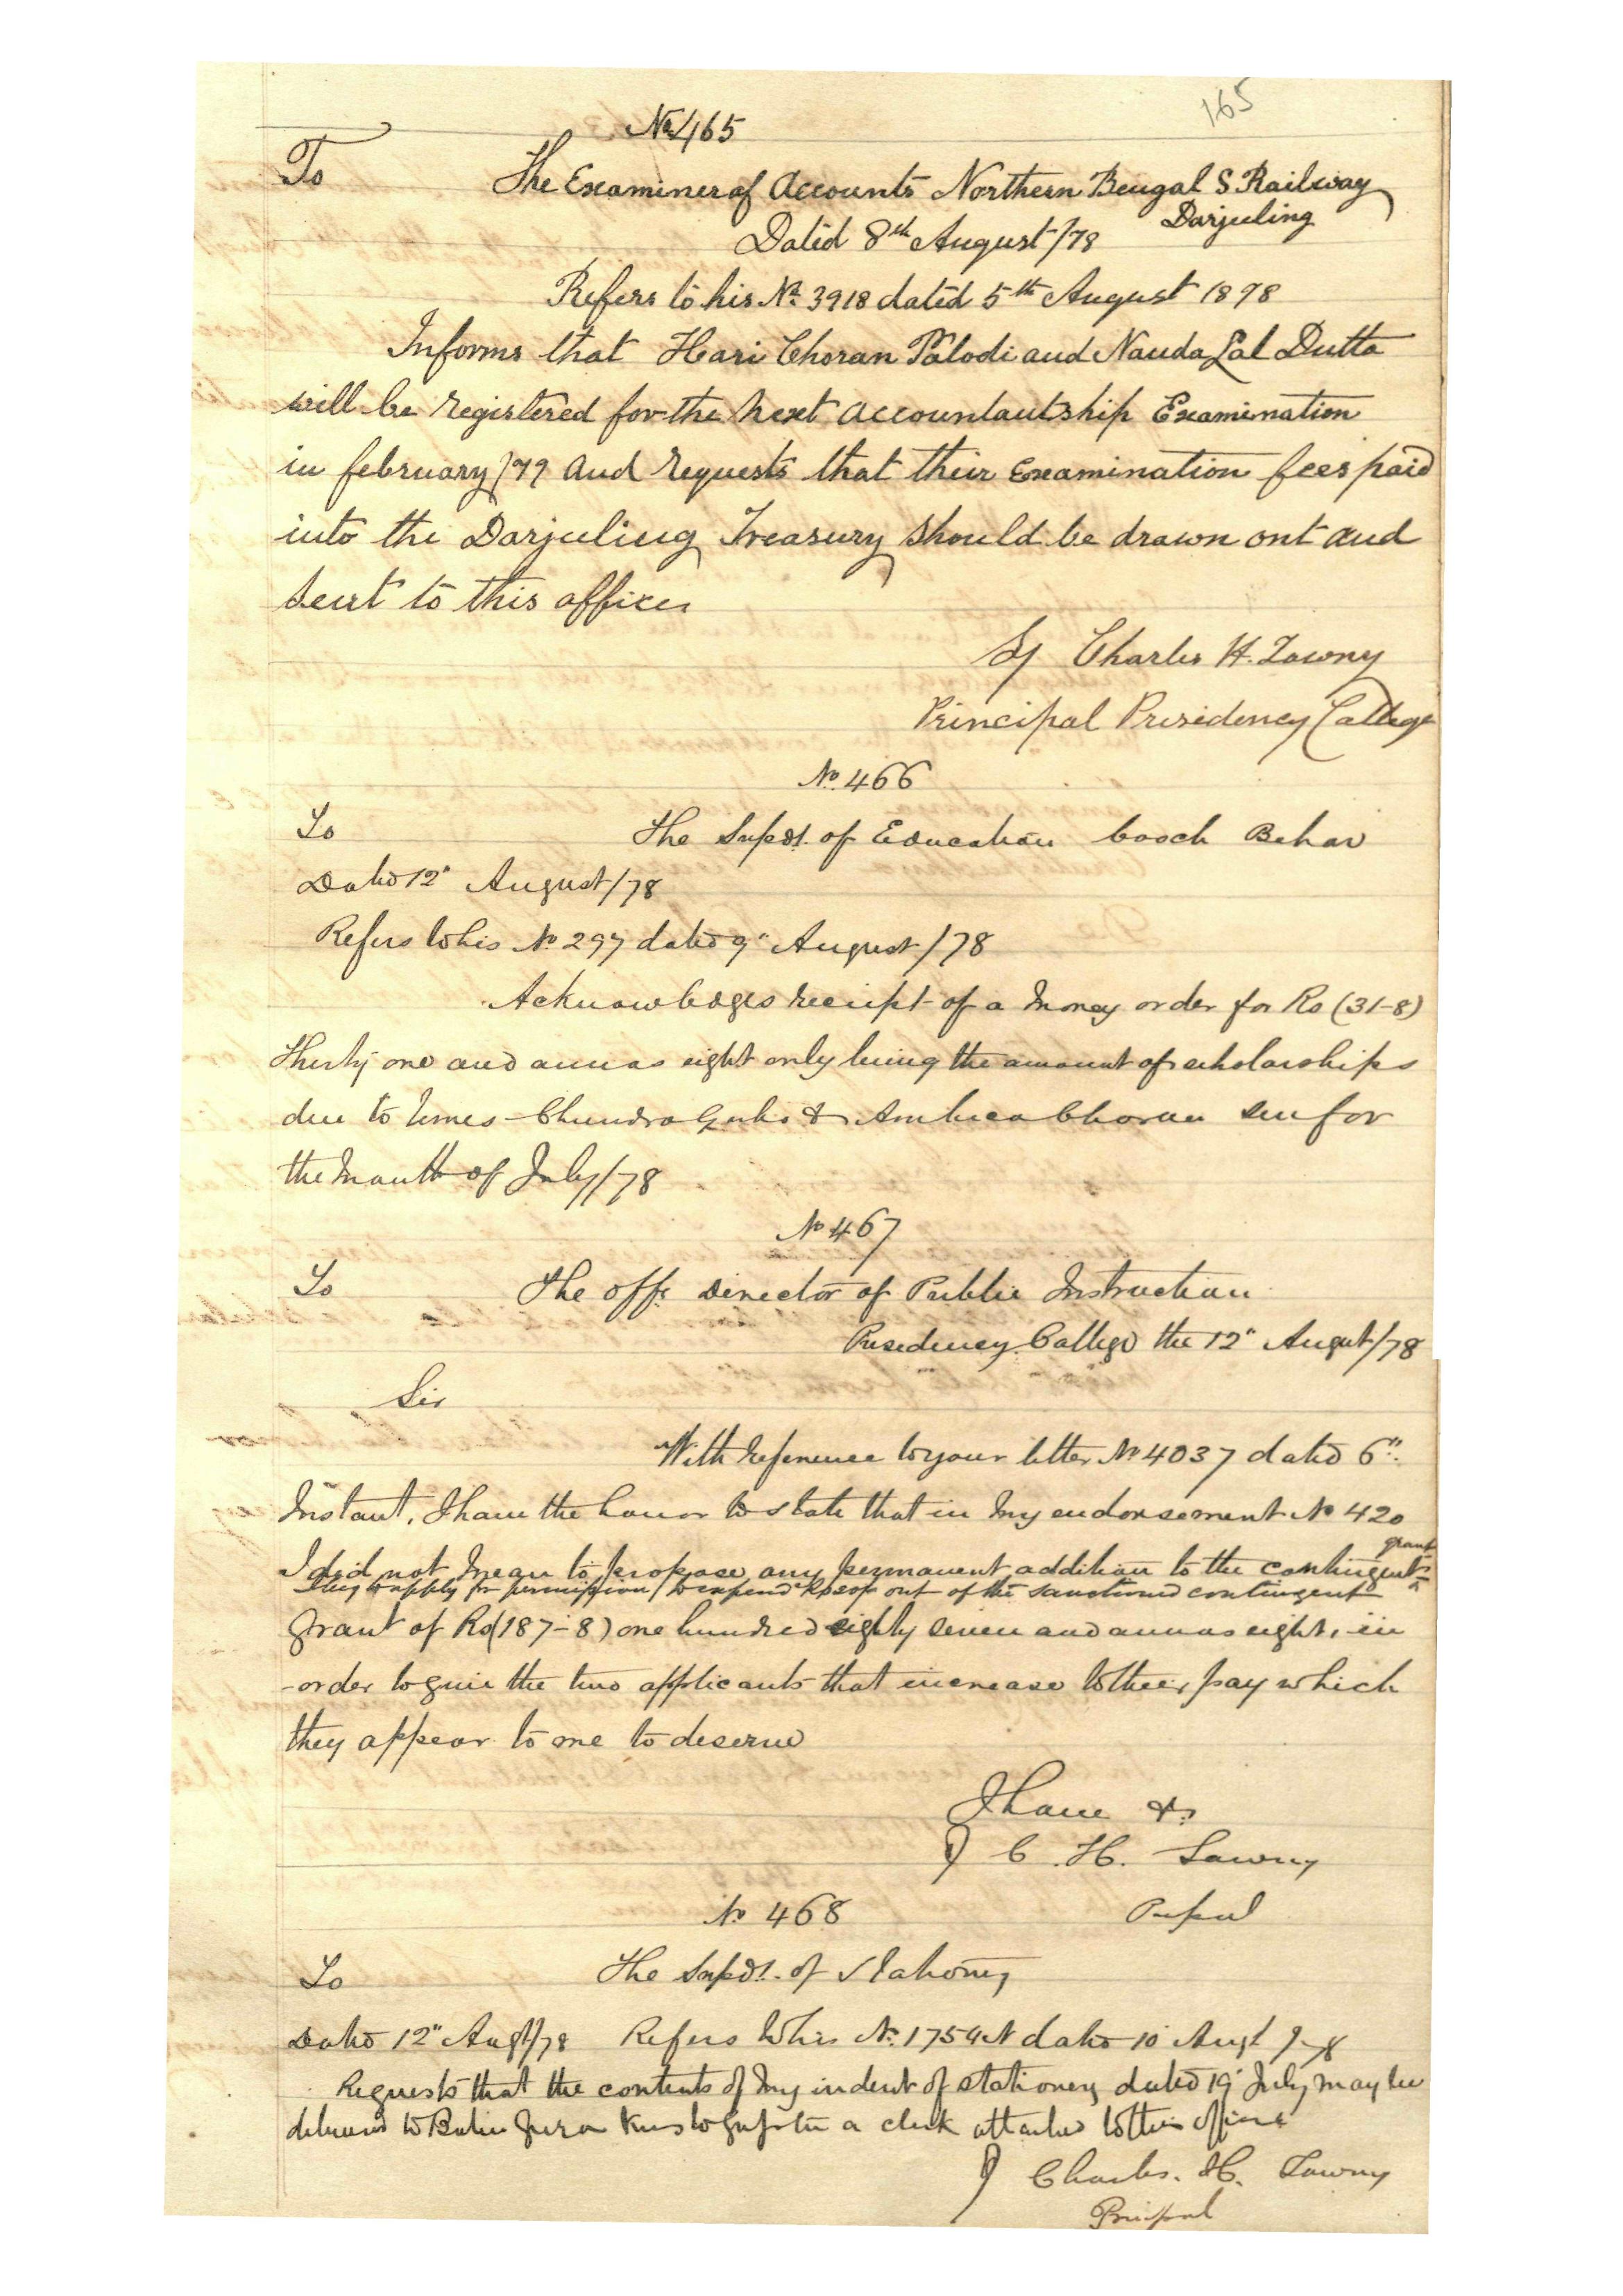 165
No 465
To The Examiner of Accounts Northern Bengal S. Railway
Darjuling
Dated 8th August /78
Refers to his No. 3918 dated 5th August 1898
Informs that Hari Choran Palodi and Nanda Lal Dutta
will be registered for the next accountantship Examination
in february /79 and requests that their Examination fees paid
into the Darjuling Treasury should be drawn out and
sent to this office
Charles H. Tawny
Principal Presidency College
No. 466
To The Supdt. of Education Cooch Behar
Dated 12" August /78
Refers to his No. 297 dated 9" August /78
Acknowledges receipt of a money order for Rs (31-8)
Thirty one and annas eight only being the amount of scholarships
due to Umes Chundra Guho & Ambica Choran Sen for
the month of July /78
No 467
To The offg. Director of Public Instruction
Presidency College the 12" August /78
Sir
With reference to your letter No 4037 dated 6"
Instant, I have the honor to state that in my endorsement No 420
I did not mean to propose any permanent addition to the contingent grant
to apply for permission to expend out of the sanctioned contingent
grant of Rs (187-8) one hundred eighty seven and annas eight, in
order to give the two applicants that increase to their pay which
they appear to me to deserve
I have &c
C. H. Tawny
No 468
To The Supdt. of Stationery
Dated 12" Augt /78 Refers to his No. 1754 N dated 10 Augt /78
Requests that the contents of my indent of stationery dated 19 July may be
delivered to a clerk attached to this office
Charles. H. Tawny
Principal